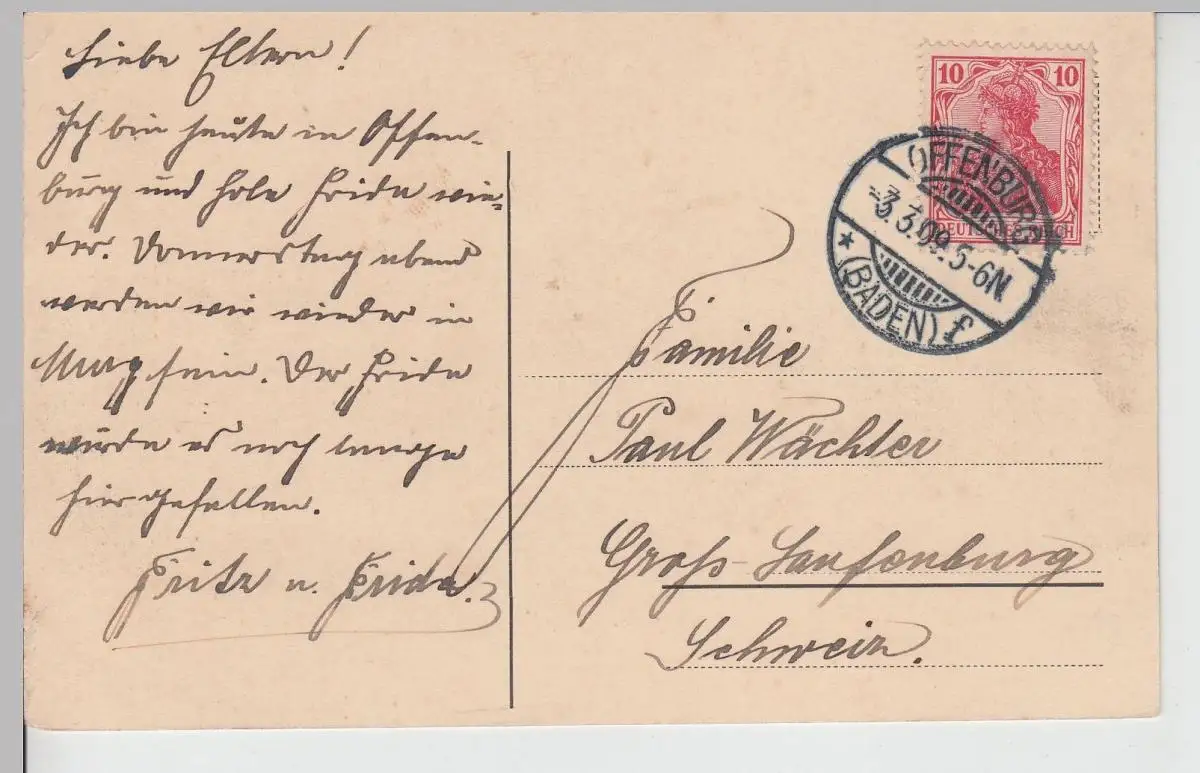 Liebe Eltern!
Ich bin heute in Offen-
burg und hole Frida wie-
der. Donnerstag abend
werden wir wieder in
Murg sein. Der Frida
würde es noch lange
hier gefallen.
Fritz u. Frida.
10 10
DEUTSCHES REICH
OFFENBURG
-3.3.09.5-6N
* (BADEN) f
Familie
Paul Wächter
Groß-Laufenburg
Schweiz.